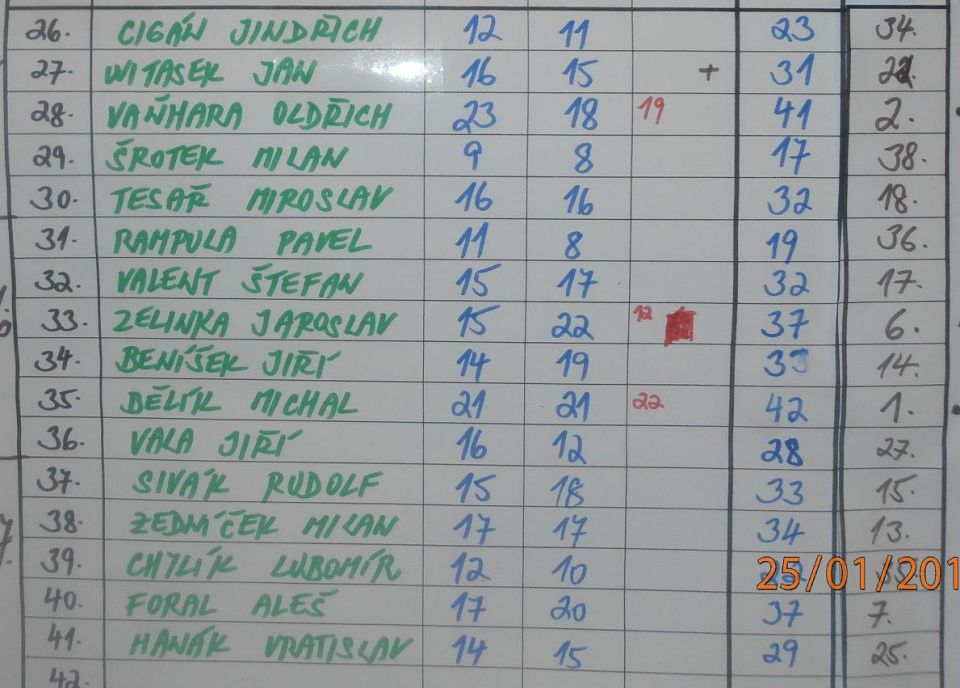 26. CIGÁN JINDŘICH 12 11 23 34.
27. WITASEK JAN 16 15 + 31
28. VAŇHARA OLDŘICH 23 18 19 41 2.
29. ŠROTEK MILAN 9 8 17 38.
30. TESAŘ MIROSLAV 16 16 32 18.
31. RAMPULA PAVEL 11 8 19 36.
32. VALENT ŠTEFAN 15 17 32 17.
33. ZELINKA JAROSLAV 15 22 12 37 6.
34. BENÍŠEK JIŘÍ 14 19 33 14.
35. BĚLÍK MICHAL 21 21 22 42 1.
36. VALA JIŘÍ 16 12 28 27.
37. SIVÁK RUDOLF 15 18 33 15.
38. ZEDNÍČEK MILAN 17 17 34 13.
39. CHYLÍK LUBOMÍR 12 10
25/01/201
40. FORAL ALEŠ 17 20 37 7.
41. HANÁK VRATISLAV 14 15 29 25.
42.